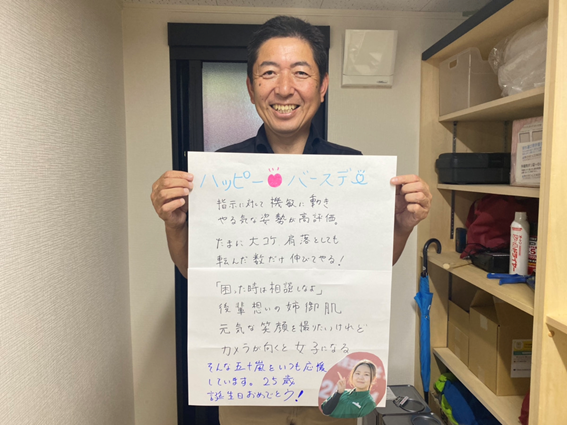 ハッピーバースデイ
指示に対して機敏に動き
やる気な姿勢が高評価。
たまに大コケ 肩落としても
転んだ数だけ伸びてやる!
「困った時は相談しなよ」
後輩想いの姉御肌
元気な笑顔を撮りたいけれど
カメラが向くと女子になる
そんな五十嵐をいつも応援
しています。25歳
誕生日おめでとう!